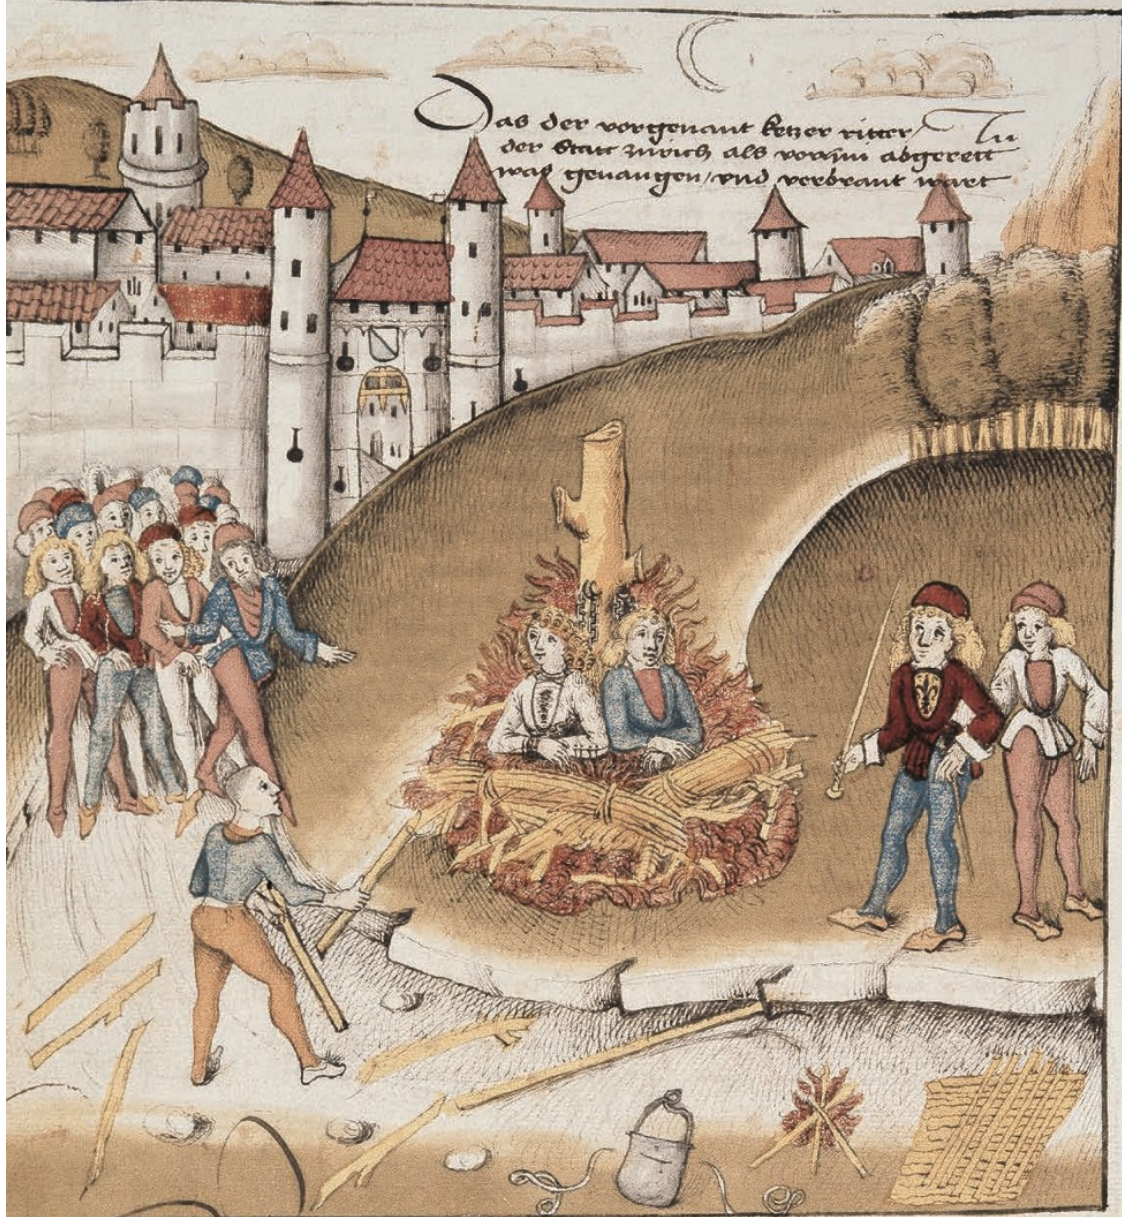 Das der vorgenant ketzer ritter / In
der Statt zürich als vorem abgerett
was gevangen / vnd verbrant wart